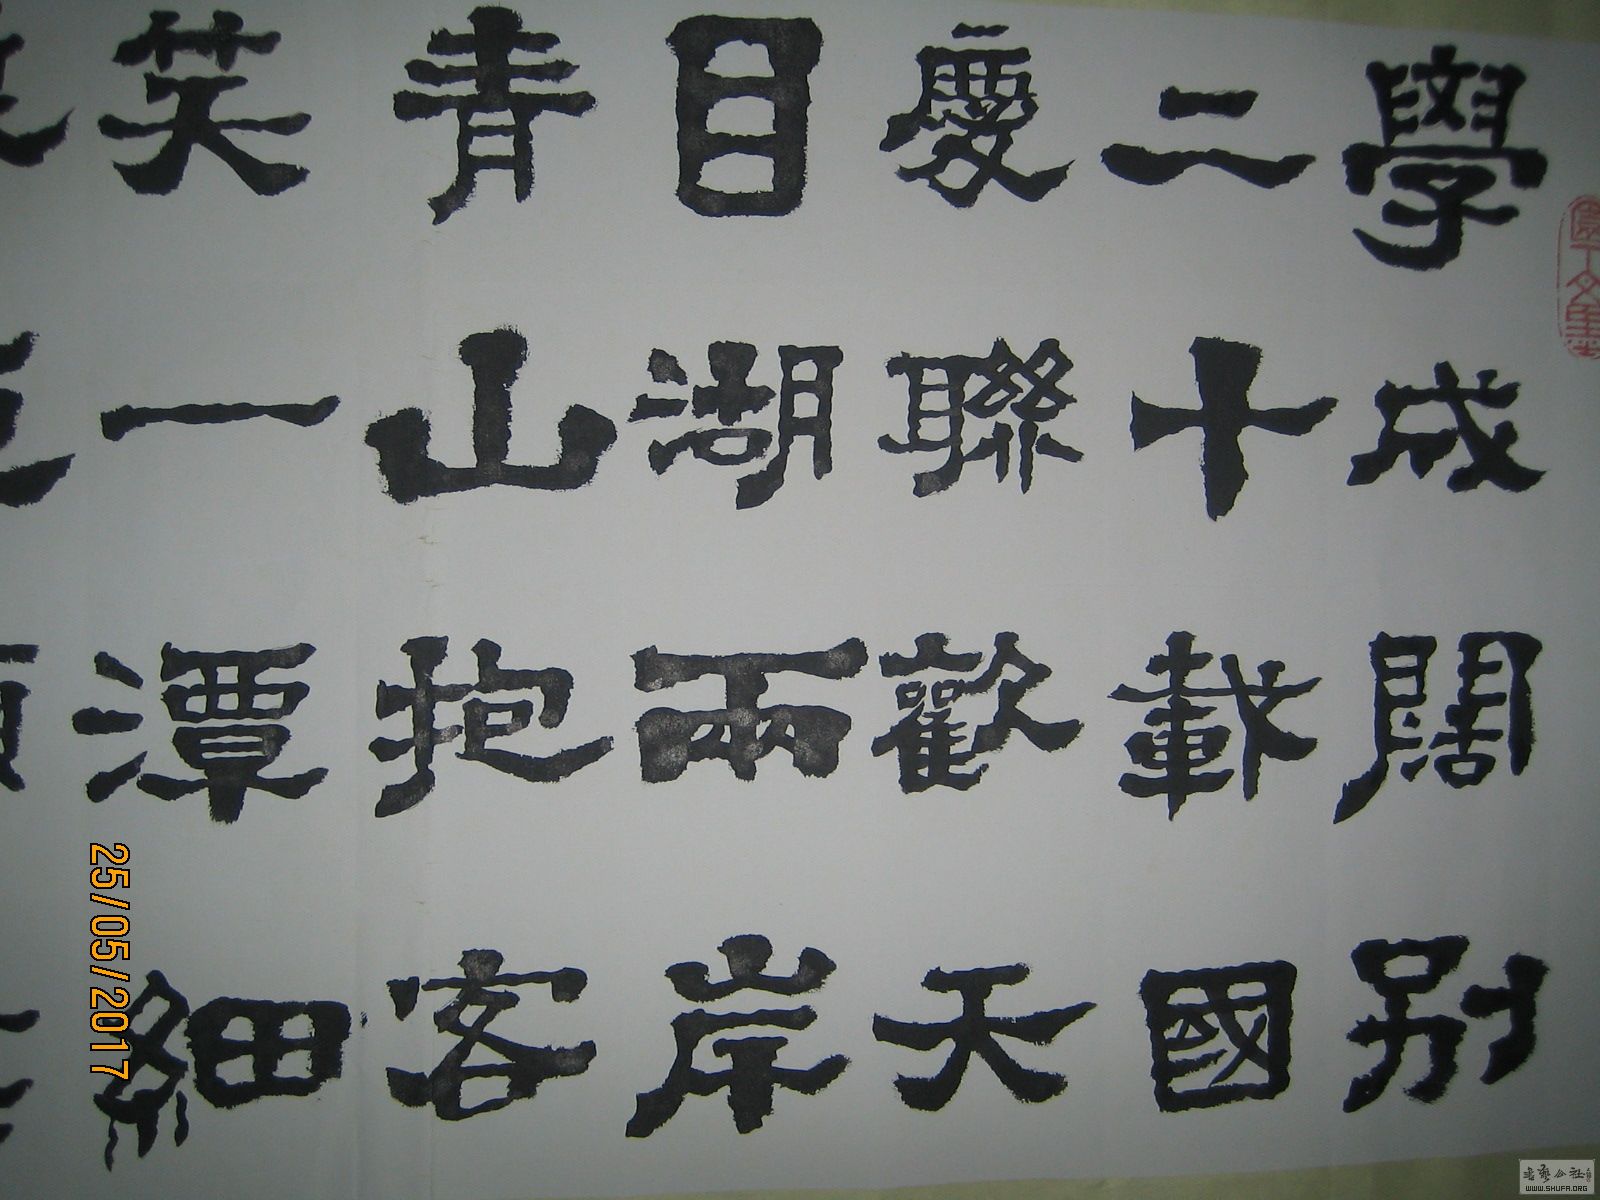 學成闊别
二十載國
慶聯歡天
目湖兩岸
青山抱客
笑一潭細
25/05/2017
WWW.SHUFA.ORG